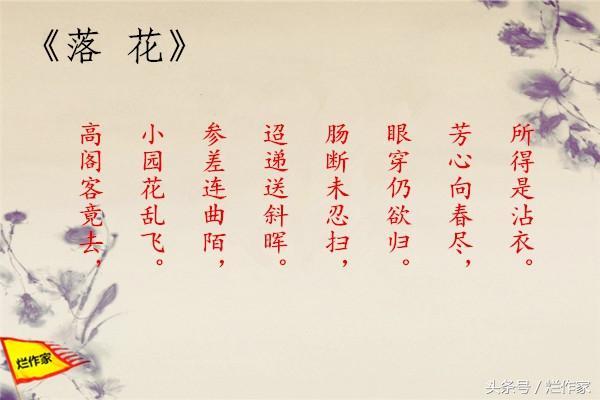 《落 花》
高阁客竟去，
小园花乱飞。
参差连曲陌，
迢递送斜晖。
肠断未忍扫，
眼穿仍欲归。
芳心向春尽，
所得是沾衣。
烂作家
头条号 / 烂作家